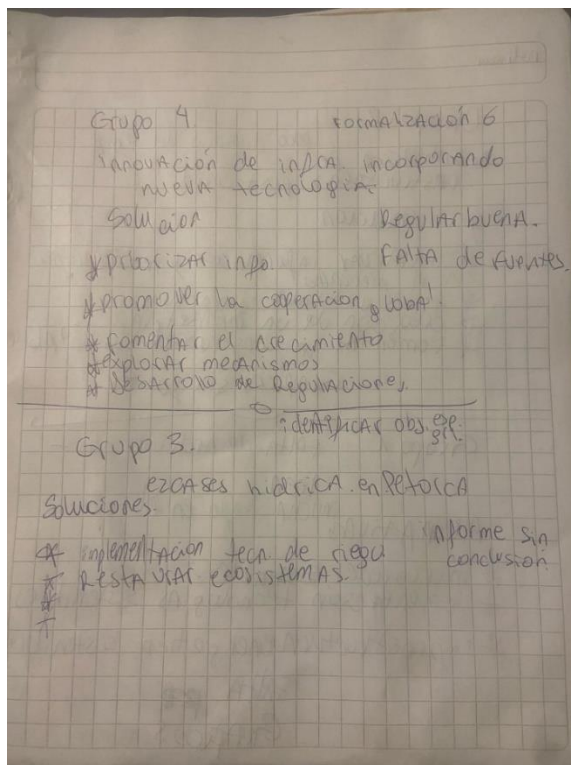 Grupo 4 formalización 6
Innovación de infra. incorporando
nueva tecnologia.
Solucion Regular buena.
* priorizar info Falta de fuentes.
* promover la cooperacion global.
* fomentar el crecimiento
* explorar mecanismos
* desarrollo de Regulaciones,
identificar obs. esp.
Grupo 3.
ezcases hidrica en Petorca
Soluciones.
informe sin
* implementacion tecn de riego conclusion
* Restaurar ecosistemas.
*